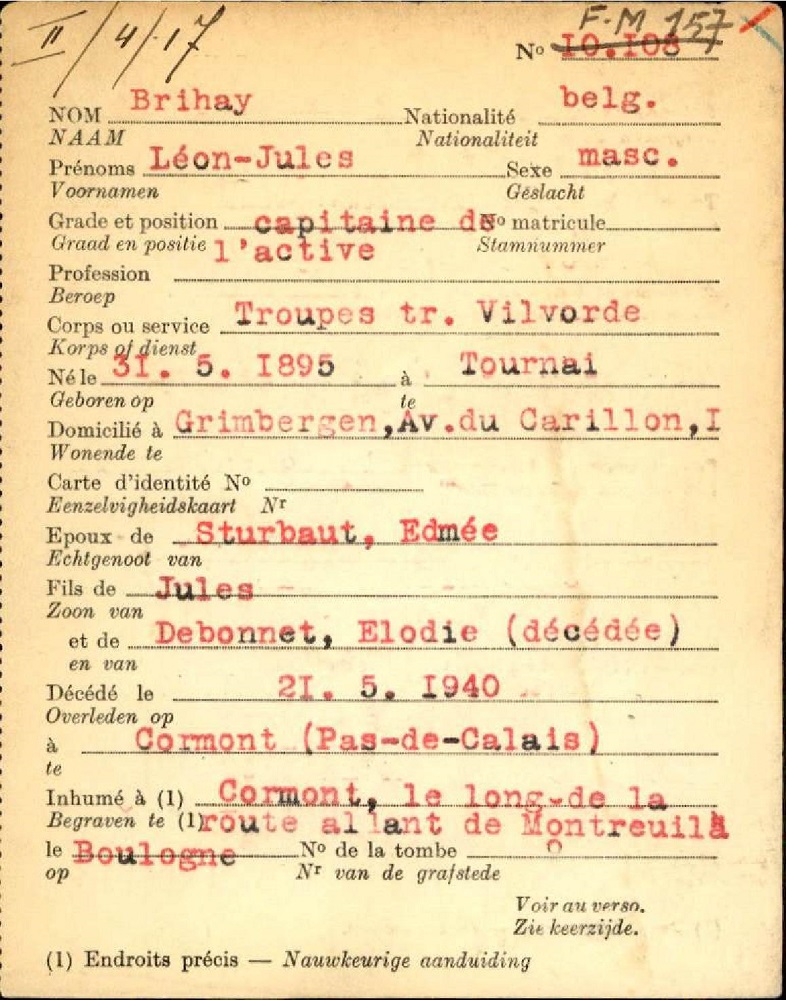 II/4/17
F-M 157
Nº 10.108
NOM Brihay Nationalité belg.
NAAM Nationaliteit
Prénoms Léon-Jules Sexe masc.
Voornamen Geslacht
Grade et position capitaine de Nº matricule
Graad en positie l'active Stamnummer
Profession
Beroep
Corps ou service Troupes tr. Vilvorde
Korps of dienst
Né le 3I. 5. I895 à Tournai
Geboren op te
Domicilié à Grimbergen,Av.du Carillon,I
Wonende te
Carte d'identité Nº
Eenzelvigheidskaart Nr
Epoux de Sturbaut, Edmée
Echtgenoot van
Fils de Jules
Zoon van
et de Debonnet, Elodie (décédée)
en van
Décédé le 2I. 5. I940
Overleden op
à Cormont (Pas-de-Calais)
te
Inhumé à (1) Cormont, le long-de la
Begraven te (1) route allant de Montreuil à
le Boulogne Nº de la tombe
op Nr van de grafstede
Voir au verso.
Zie keerzijde.
(1) Endroits précis — Nauwkeurige aanduiding